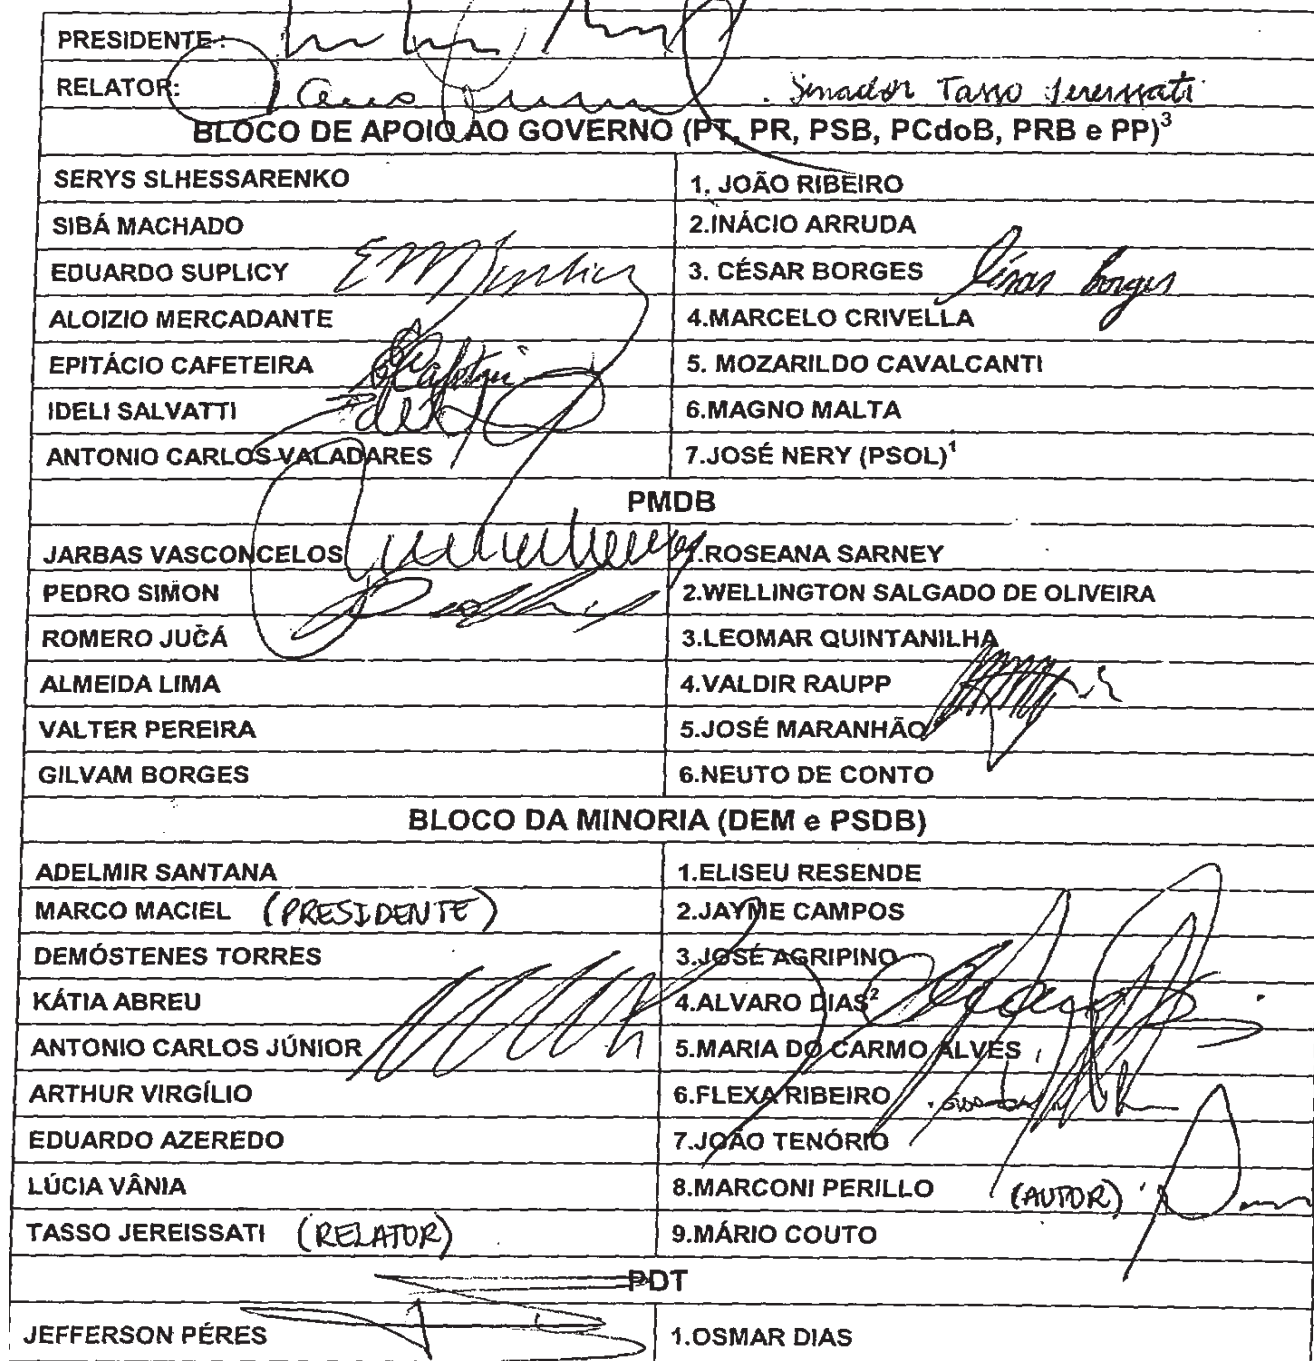 PRESIDENTE :
RELATOR: Senador Tasso Jereissati
BLOCO DE APOIO AO GOVERNO (PT, PR, PSB, PCdoB, PRB e PP)³
SERYS SLHESSARENKO 1. JOÃO RIBEIRO
SIBÁ MACHADO 2.INÁCIO ARRUDA
EDUARDO SUPLICY 3. CÉSAR BORGES César Borges
ALOIZIO MERCADANTE 4.MARCELO CRIVELLA
EPITÁCIO CAFETEIRA 5. MOZARILDO CAVALCANTI
IDELI SALVATTI 6.MAGNO MALTA
ANTONIO CARLOS VALADARES 7.JOSÉ NERY (PSOL)¹
PMDB
JARBAS VASCONCELOS 1.ROSEANA SARNEY
PEDRO SIMON 2.WELLINGTON SALGADO DE OLIVEIRA
ROMERO JUCÁ 3.LEOMAR QUINTANILHA
ALMEIDA LIMA 4.VALDIR RAUPP
VALTER PEREIRA 5.JOSÉ MARANHÃO
GILVAM BORGES 6.NEUTO DE CONTO
BLOCO DA MINORIA (DEM e PSDB)
ADELMIR SANTANA 1.ELISEU RESENDE
MARCO MACIEL (PRESIDENTE) 2.JAYME CAMPOS
DEMÓSTENES TORRES 3.JOSÉ AGRIPINO
KÁTIA ABREU 4.ALVARO DIAS²
ANTONIO CARLOS JÚNIOR 5.MARIA DO CARMO ALVES
ARTHUR VIRGÍLIO 6.FLEXA RIBEIRO
EDUARDO AZEREDO 7.JOÃO TENÓRIO
LÚCIA VÂNIA 8.MARCONI PERILLO (AUTOR)
TASSO JEREISSATI (RELATOR) 9.MÁRIO COUTO
PDT
JEFFERSON PÉRES 1.OSMAR DIAS